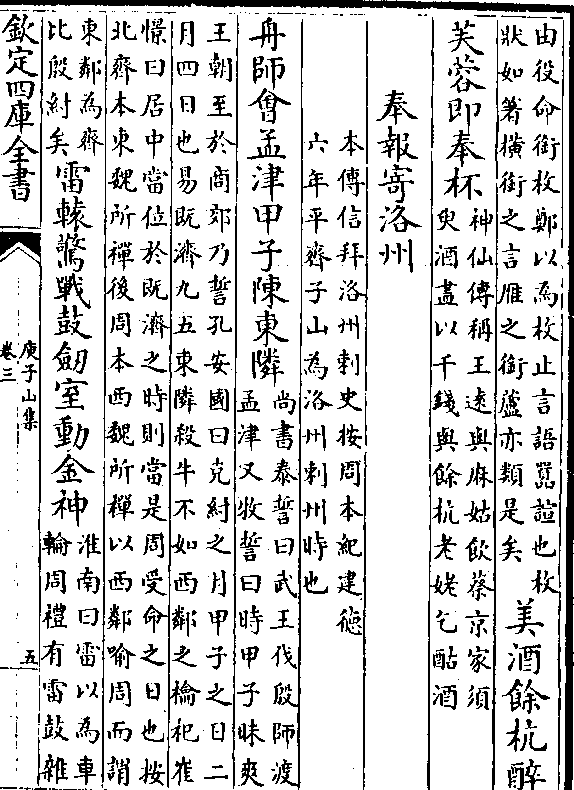 由役命銜枚鄭以為枚止言語嚚諠也枚
狀如箸横銜之言雁之銜蘆亦類是矣
美酒餘杭醉
芙蓉即奉杯
神仙傳稱王逺與麻姑飲蔡京家須
臾酒盡以千錢與餘杭老姥乞酤酒
奉報寄洛州
本傳信拜洛州刺史按周本紀建徳
六年平齊子山為洛州刺州時也
舟師會孟津甲子陳東隣
尚書泰誓曰武王伐殷師渡
孟津又牧誓曰時甲子昧爽
王朝至於商郊乃誓孔安國曰克紂之月甲子之日二
月四日也易既濟九五東隣殺牛不如西鄰之檎祀崔
憬曰居中當位於既濟之時則當是周受命之日也按
北齊本東魏所禪後周本西魏所禪以西鄰喻周而謂
東鄰為齊
比殷紂矣
雷轅驚戰鼓劒室動金神
淮南曰雷以為車
輪周禮有雷鼓雜
欽定四庫全書
庾子山集
卷三
五